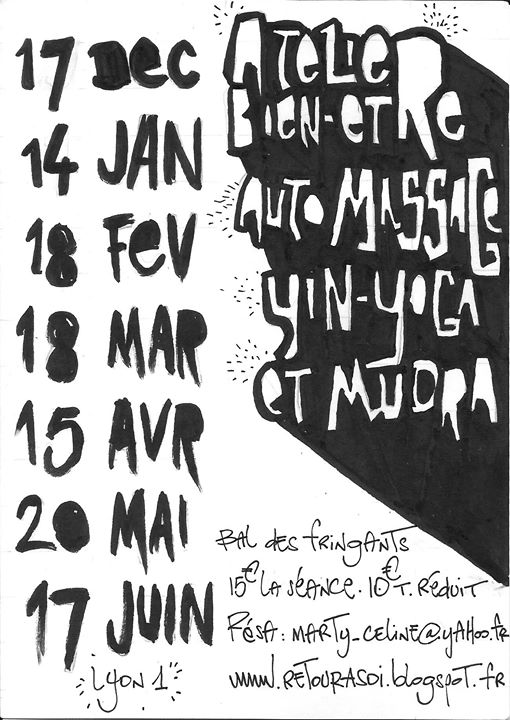 17 Dec
14 JAN
18 Fev
18 MAR
15 AVR
20 MAI
17 JUIN
Lyon 1
ATELIeR
BIeN-eTRe
AUTO MASSAGe
YIN-YOGA
eT MUDRA
BAL DES FRINGANTS
15€ LA SÉANCE. 10€ T. RÉDUIT
RÉSA : MARTY_CELINE@YAHOO.FR
WWW.RETOURASOI.BLOGSPOT.FR